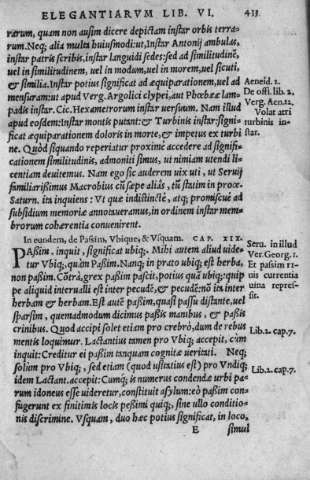 ELEGANTIARVM LIB. VI. 433
rarum, quam non ausim dicere depictam instar orbis terra-
rum. Neq; alia multa huiusmodi: ut, Instar Antonij ambulas,
instar patris scribis, instar languidi sedes: sed ad similitudinē,
uel in similitudinem, uel in modum, uel in morem, uel sicuti,
& similia. Instar potius significat ad æquiparationem, uel ad
mensuram: ut apud Verg. Argolici clypei, aut Phœbææ lam-
padis instar. Cic. Hexametrorum instar uersuum. Nam illud
apud eosdem: Instar montis putant: & Turbinis instar: signi-
ficat æquiparationem doloris in morte, & impetus ex turbi
ne. Quòd siquando reperiatur proximè accedere ad signifi-
cationem similitudinis, admoniti simus, ut nimiam utendi li-
centiam deuitemus. Nam ego sic auderem uix uti, ut Seruij
familiarissimus Macrobius cùm sæpe aliàs, tùm statim in proœ.
Saturn. ita inquiens: Vt quæ indistinctè, atq; promiscuè ad
subsidium memoriæ annotaueramus, in ordinem instar mem-
brorum cohærentia conuenirent.
Aeneid. 2.
De offi. lib. 2.
Verg. Aen. 12.
Volat atri
turbinis in-
star.
In eundem, de Passim, Vbique, & Vsquam. CAP. XIX.
PAssim, inquit, significat ubiq;. Mihi autem aliud uide-
tur Vbiq;, quàm Passim. Nanq; in prato ubiq; est herba,
non passim. Cōtrà, grex passim pascit, potius quā ubiq;: quip
pe aliquid interualli est inter pecudē, & pecudē: nō itē inter
herbam & herbam. Est autē passim, quasi passu distante, uel
sparsim, quemadmodum dicimus passis manibus, & passis
crinibus. Quod accipi solet etiam pro crebrò, dum de rebus
mentis loquimur. Lactantius tamen pro Vbiq; accepit, cùm
inquit: Creditur ei passim tanquam cognitæ ueritati. Neq;
solùm pro Vbiq;, sed etiam (quod usitatius est) pro Vndiq;
idem Lactant. accepit: Cumq; is numerus condendæ urbi pa-
rum idoneus esse uideretur, constituit asylum: eò passim con-
fugerunt ex finitimis locis pessimi quiq;, sine ullo conditio-
nis discrimine. Vsquam, duo hæc potius significat, in loco,
Seru. in illud
Ver. Georg. 1.
Et passim ri-
uis currentia
uina repres-
sit.
Lib. 2. cap. 7.
Lib. 2. cap. 7.
E simul